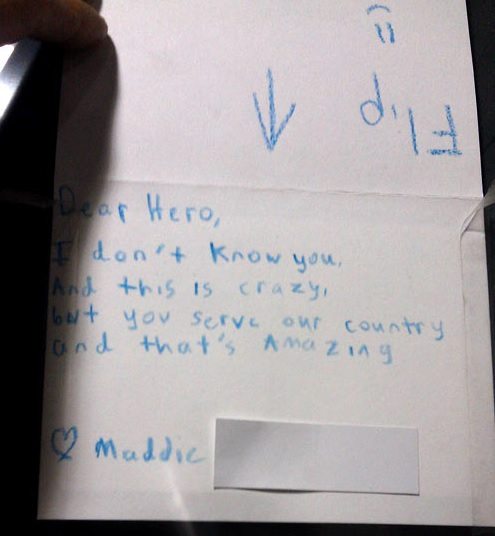 Flip =)
Dear Hero,
I don't know you,
And this is crazy,
but you serve our country
and that's Amazing
♡ Maddie